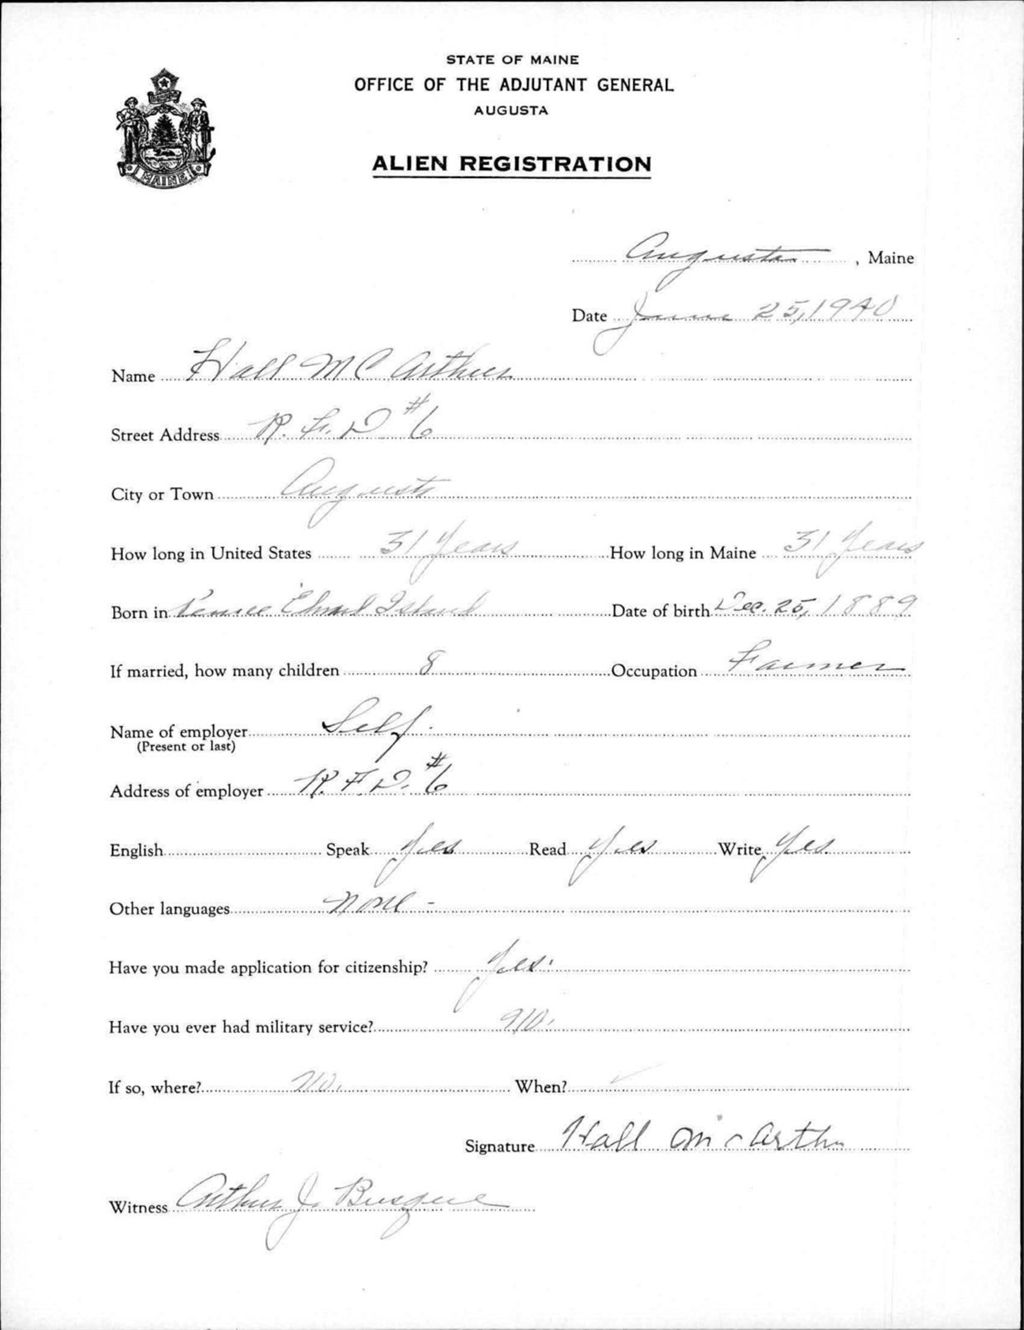 STATE OF MAINE
OFFICE OF THE ADJUTANT GENERAL
AUGUSTA
ALIEN REGISTRATION
MAINE
Augusta, Maine
Date June 25, 1940
Name Hall McArthur
Street Address R.F.D #6
City or Town Augusta
How long in United States 31 Years How long in Maine 31 Years
Born in Prince Edward Island Date of birth Dec. 25, 1889
If married, how many children 8 Occupation Farmer
Name of employer Self.
(Present or last)
Address of employer R.F.D. #6
English Speak Yes Read Yes Write Yes.
Other languages None -
Have you made application for citizenship? Yes.
Have you ever had military service? No.
If so, where? No. When? ✓
Signature Hall McArthur
Witness Arthur J. Busque